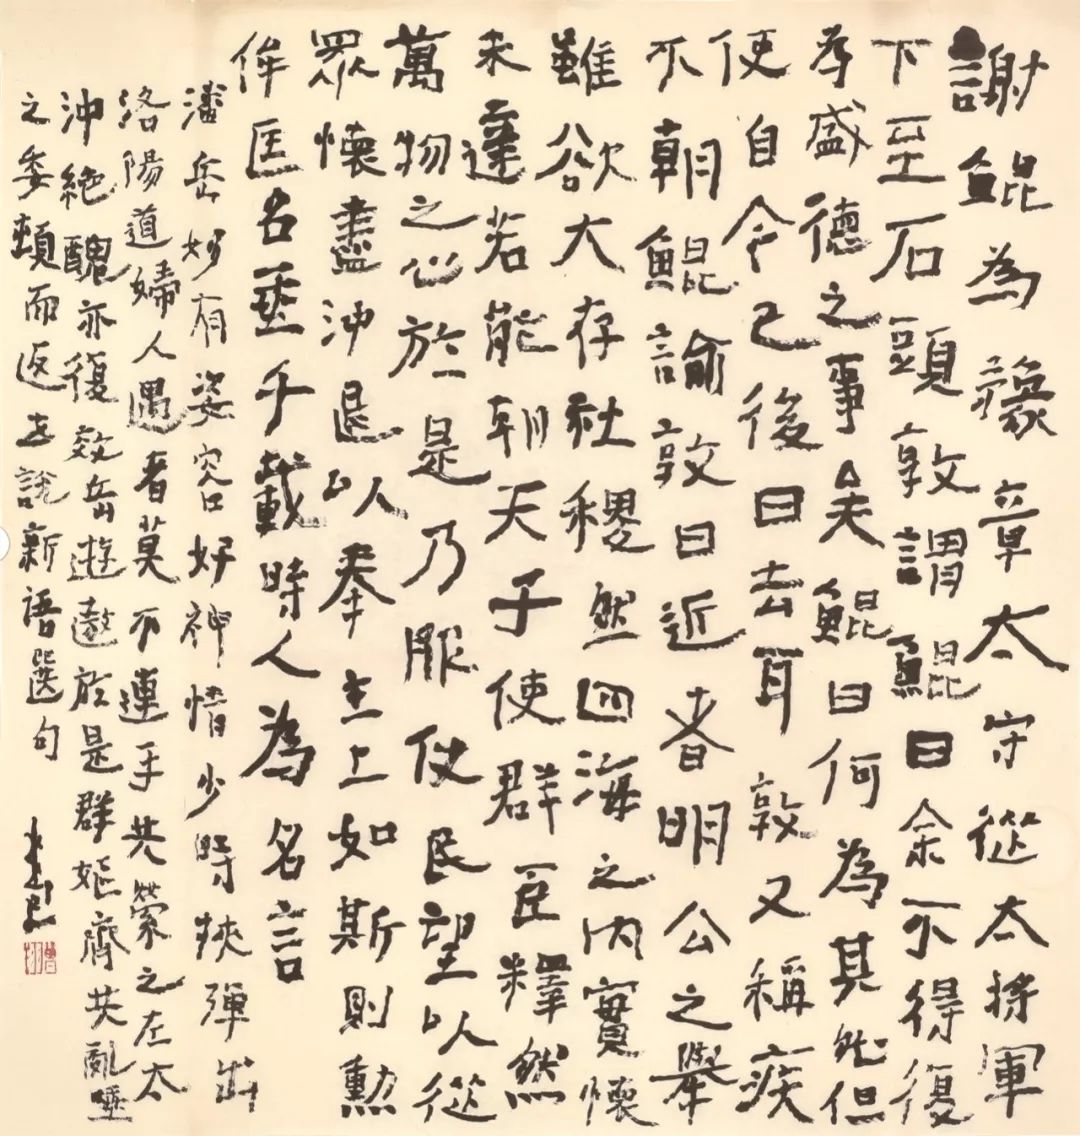 謝鯤為豫章太守從太将軍
下至石頭敦謂鯤曰余不得復
為盛德之事矣鯤曰何為其然但
使自今已後日去耳敦又稱疾
不朝鯤諭敦曰近者明公之舉
雖欲大存社稷然四海之內實懷
未達若能朝天子使群臣釋然
萬物之心於是乃服仗民望以從
眾懷盡沖退以奉主上如斯則勳
侔匡名垂千載時人為名言
潘岳妙有姿容好神情少時挾彈出
洛陽道婦人遇者莫不連手共縈之左太
沖絕醜亦復效岳遊遨於是群嫗齊共亂唾
之委頓而返世說新語選句